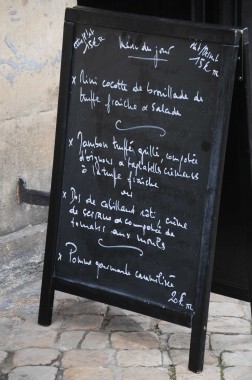 Entr/Plat Menu du jour Plat/Dessert
15€ 15€
x Mini cocotte de brouillade de
truffe fraîche & salade
x Jambon truffé grillé, compotée
d'oignons &
à la truffe fraîche
ou
x Dos de cabillaud rôti, crème
de & compotée de
tomates aux
x Pomme gourmande caramélisée
20€